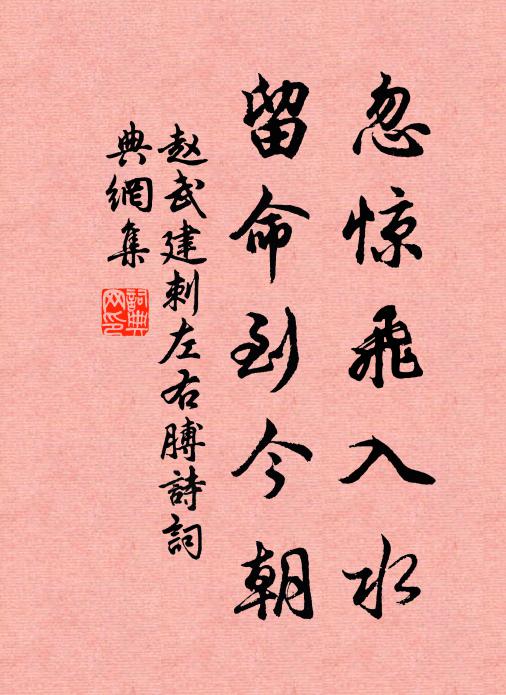 忽惊飛入水
留命到今朝
赵武建刺左右膊詩詞
典網集
詞典
网印